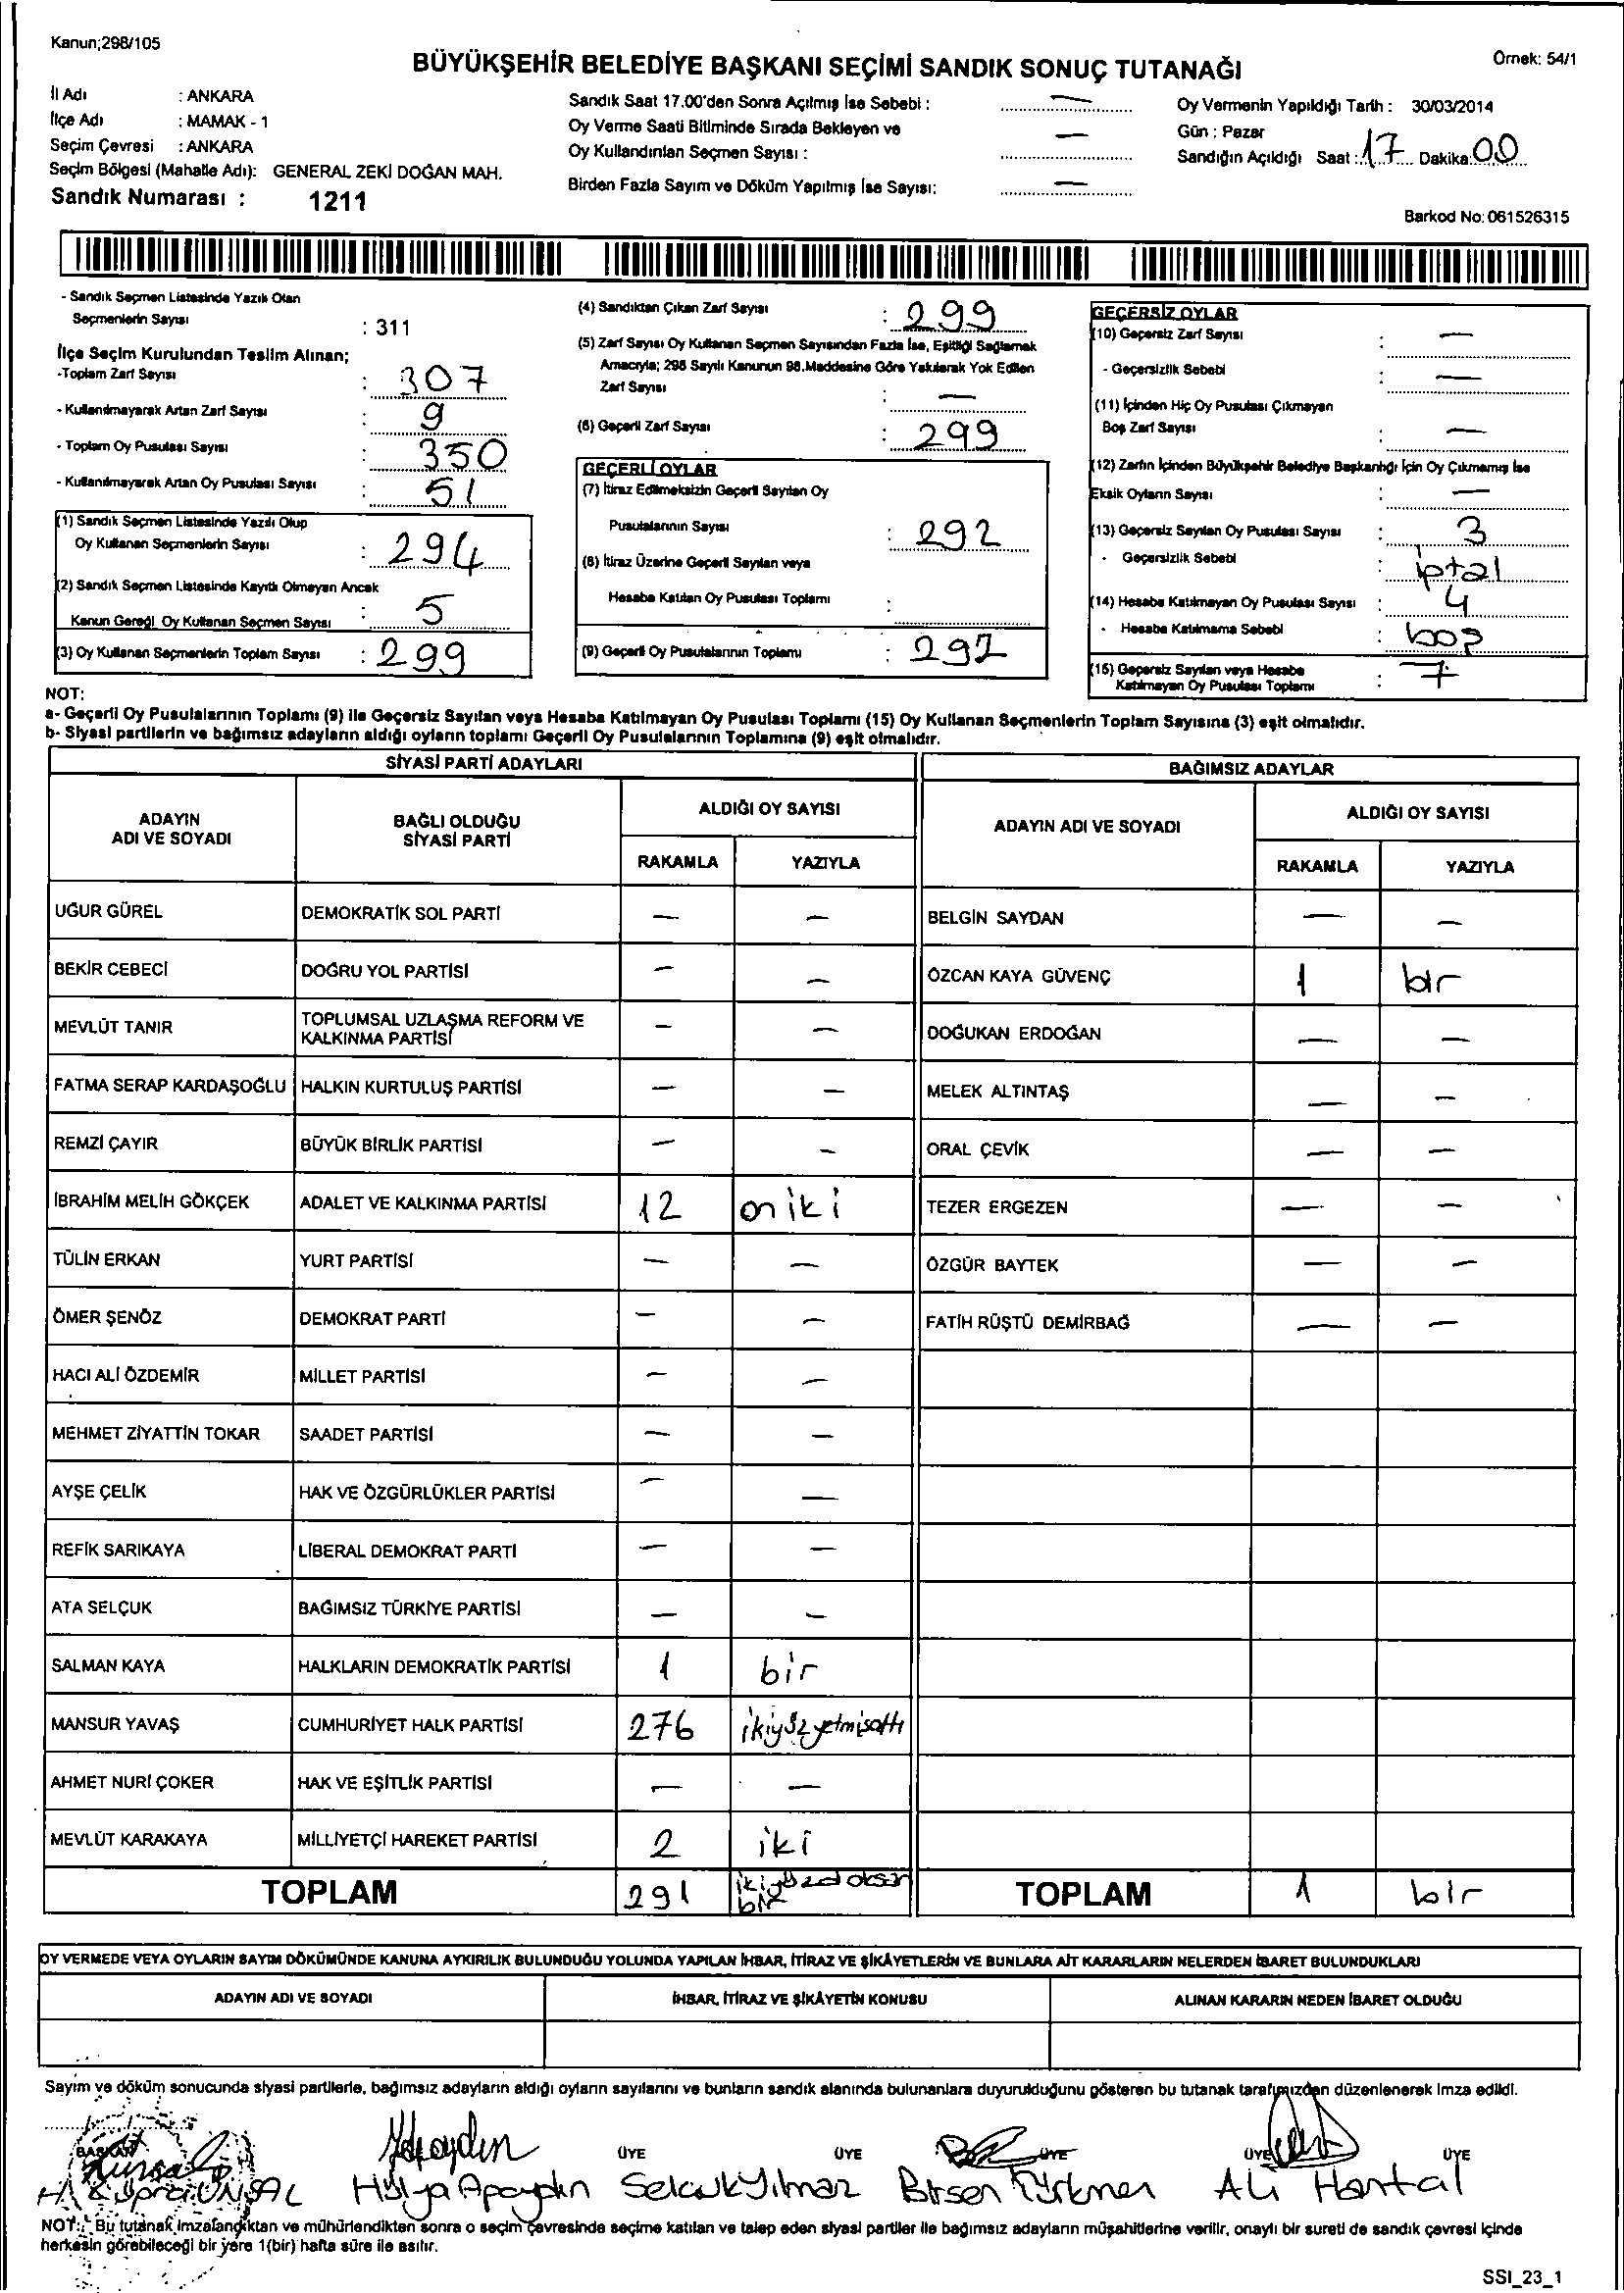 Kanun;298/105
BÜYÜKŞEHİR BELEDİYE BAŞKANI SEÇİMİ SANDIK SONUÇ TUTANAĞI
Örnek: 54/1
İl Adı : ANKARA
İlçe Adı : MAMAK - 1
Seçim Çevresi : ANKARA
Seçim Bölgesi (Mahalle Adı): GENERAL ZEKİ DOĞAN MAH.
Sandık Numarası : 1211
Sandık Saat 17.00'den Sonra Açılmış İse Sebebi : —
Oy Verme Saati Bitiminde Sırada Bekleyen ve
Oy Kullandırılan Seçmen Sayısı : —
Birden Fazla Sayım ve Döküm Yapılmış İse Sayısı: —
Oy Vermenin Yapıldığı Tarih : 30/03/2014
Gün : Pazar
Sandığın Açıldığı Saat : 17 Dakika: 00
Barkod No: 061526315
- Sandık Seçmen Listesinde Yazılı Olan
Seçmenlerin Sayısı : 311
İlçe Seçim Kurulundan Teslim Alınan;
-Toplam Zarf Sayısı : 307
- Kullanılmayarak Artan Zarf Sayısı : 9
- Toplam Oy Pusulası Sayısı : 350
- Kullanılmayarak Artan Oy Pusulası Sayısı : 51
(1) Sandık Seçmen Listesinde Yazılı Olup
Oy Kullanan Seçmenlerin Sayısı : 294
(2) Sandık Seçmen Listesinde Kayıtlı Olmayan Ancak
Kanun Gereği Oy Kullanan Seçmen Sayısı : 5
(3) Oy Kullanan Seçmenlerin Toplam Sayısı : 299
(4) Sandıktan Çıkan Zarf Sayısı : 299
(5) Zarf Sayısı Oy Kullanan Seçmen Sayısından Fazla İse, Eşitliği Sağlamak
Amacıyla; 298 Sayılı Kanunun 98.Maddesine Göre Yakılarak Yok Edilen
Zarf Sayısı : —
(6) Geçerli Zarf Sayısı : 299
GEÇERLİ OYLAR
(7) İtiraz Edilmeksizin Geçerli Sayılan Oy
Pusulalarının Sayısı : 292
(8) İtiraz Üzerine Geçerli Sayılan veya
Hesaba Katılan Oy Pusulası Toplamı :
(9) Geçerli Oy Pusulalarının Toplamı : 292
GEÇERSİZ OYLAR
(10) Geçersiz Zarf Sayısı : —
- Geçersizlik Sebebi : —
(11) İçinden Hiç Oy Pusulası Çıkmayan
Boş Zarf Sayısı : —
(12) Zarfın İçinden Büyükşehir Belediye Başkanlığı İçin Oy Çıkmamış İse
Eksik Oyların Sayısı : —
(13) Geçersiz Sayılan Oy Pusulası Sayısı : 3
- Geçersizlik Sebebi : iptal
(14) Hesaba Katılmayan Oy Pusulası Sayısı : 4
- Hesaba Katılmama Sebebi : boş
(15) Geçersiz Sayılan veya Hesaba
Katılmayan Oy Pusulası Toplamı : 7
NOT:
a- Geçerli Oy Pusulalarının Toplamı (9) ile Geçersiz Sayılan veya Hesaba Katılmayan Oy Pusulası Toplamı (15) Oy Kullanan Seçmenlerin Toplam Sayısına (3) eşit olmalıdır.
b- Siyasi partilerin ve bağımsız adayların aldığı oyların toplamı Geçerli Oy Pusulalarının Toplamına (9) eşit olmalıdır.
SİYASİ PARTİ ADAYLARI
ADAYIN ADI VE SOYADI BAĞLI OLDUĞU SİYASİ PARTİ ALDIĞI OY SAYISI
RAKAMLA YAZIYLA
UĞUR GÜREL DEMOKRATİK SOL PARTİ — —
BEKİR CEBECİ DOĞRU YOL PARTİSİ — —
MEVLÜT TANIR TOPLUMSAL UZLAŞMA REFORM VE KALKINMA PARTİSİ — —
FATMA SERAP KARDAŞOĞLU HALKIN KURTULUŞ PARTİSİ — —
REMZİ ÇAYIR BÜYÜK BİRLİK PARTİSİ — —
İBRAHİM MELİH GÖKÇEK ADALET VE KALKINMA PARTİSİ 12 oniki
TÜLİN ERKAN YURT PARTİSİ — —
ÖMER ŞENÖZ DEMOKRAT PARTİ — —
HACI ALİ ÖZDEMİR MİLLET PARTİSİ — —
MEHMET ZİYATTİN TOKAR SAADET PARTİSİ — —
AYŞE ÇELİK HAK VE ÖZGÜRLÜKLER PARTİSİ — —
REFİK SARIKAYA LİBERAL DEMOKRAT PARTİ — —
ATA SELÇUK BAĞIMSIZ TÜRKİYE PARTİSİ — —
SALMAN KAYA HALKLARIN DEMOKRATİK PARTİSİ 1 bir
MANSUR YAVAŞ CUMHURİYET HALK PARTİSİ 276 ikiyüzyetmişaltı
AHMET NURİ ÇOKER HAK VE EŞİTLİK PARTİSİ — —
MEVLÜT KARAKAYA MİLLİYETÇİ HAREKET PARTİSİ 2 iki
TOPLAM 291 ikiyüzdoksan bir
BAĞIMSIZ ADAYLAR
ADAYIN ADI VE SOYADI ALDIĞI OY SAYISI
RAKAMLA YAZIYLA
BELGİN SAYDAN — —
ÖZCAN KAYA GÜVENÇ 1 bir
DOĞUKAN ERDOĞAN — —
MELEK ALTINTAŞ — —
ORAL ÇEVİK — —
TEZER ERGEZEN — —
ÖZGÜR BAYTEK — —
FATİH RÜŞTÜ DEMİRBAĞ — —
TOPLAM 1 bir
OY VERMEDE VEYA OYLARIN SAYIM DÖKÜMÜNDE KANUNA AYKIRILIK BULUNDUĞU YOLUNDA YAPILAN İHBAR, İTİRAZ VE ŞİKÂYETLERİN VE BUNLARA AİT KARARLARIN NELERDEN İBARET BULUNDUKLARI
ADAYIN ADI VE SOYADI İHBAR, İTİRAZ VE ŞİKÂYETİN KONUSU ALINAN KARARIN NEDEN İBARET OLDUĞU
Sayım ve döküm sonucunda siyasi partilerle, bağımsız adayların aldığı oyların sayılarını ve bunların sandık alanında bulunanlara duyurulduğunu gösteren bu tutanak tarafımızdan düzenlenerek imza edildi.
BAŞKAN ÜYE ÜYE ÜYE ÜYE ÜYE
ÜNSAL Hülya Apaydın Selcuk Yılmaz Birsen Türkmen Ali Hantal
NOT: Bu tutanak imzalandıktan ve mühürlendikten sonra o seçim çevresinde seçime katılan ve talep eden siyasi partiler ile bağımsız adayların müşahitlerine verilir, onaylı bir sureti de sandık çevresi içinde
herkesin görebileceği bir yere 1(bir) hafta süre ile asılır.
SSI_23_1